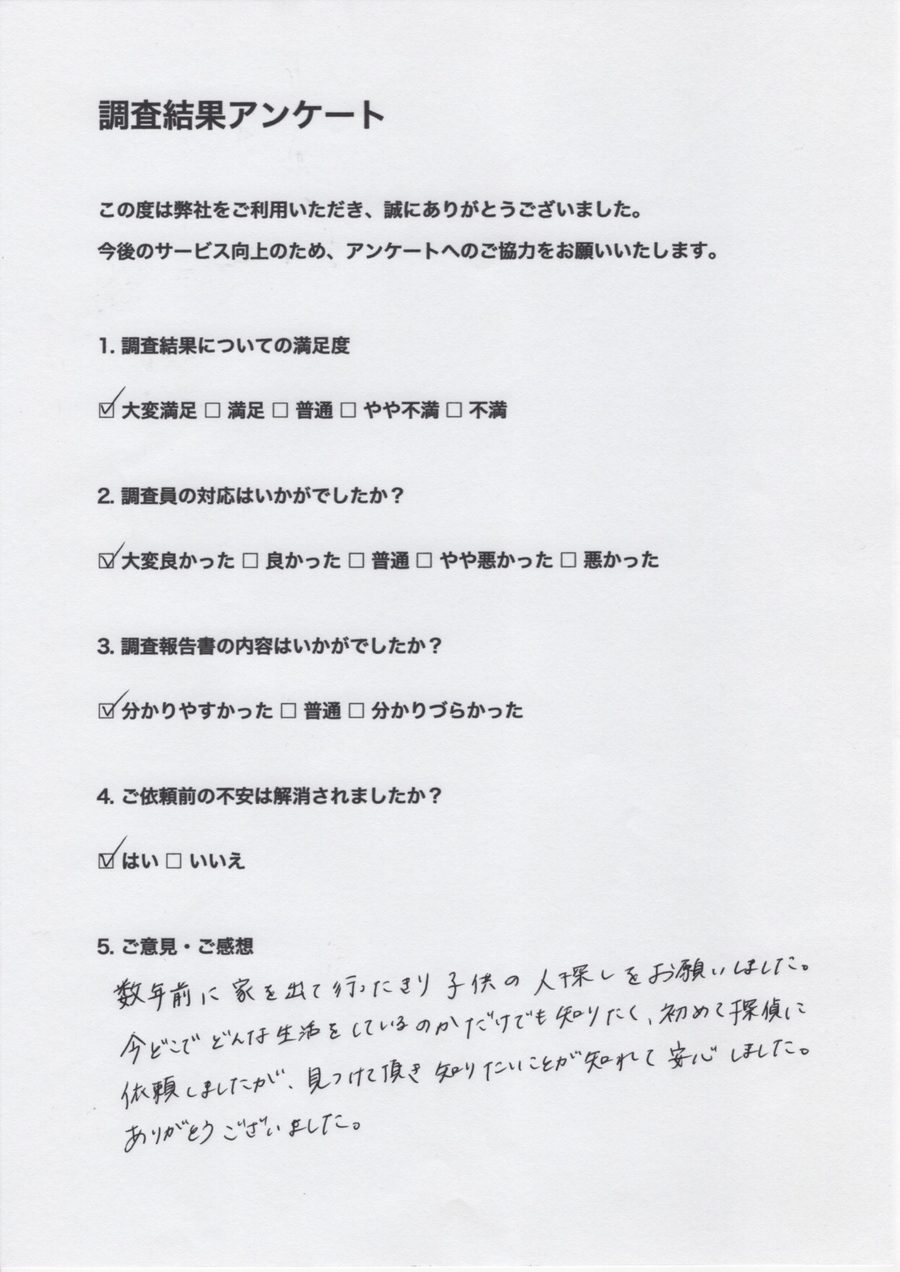 調査結果アンケート
この度は弊社をご利用いただき、誠にありがとうございました。
今後のサービス向上のため、アンケートへのご協力をお願いいたします。
1. 調査結果についての満足度
☑ 大変満足 □ 満足 □ 普通 □ やや不満 □ 不満
2. 調査員の対応はいかがでしたか？
☑ 大変良かった □ 良かった □ 普通 □ やや悪かった □ 悪かった
3. 調査報告書の内容はいかがでしたか？
☑ 分かりやすかった □ 普通 □ 分かりづらかった
4. ご依頼前の不安は解消されましたか？
☑ はい □ いいえ
5. ご意見・ご感想
数年前に家を出て行ったきり子供の人探しをお願いしました。
今どこでどんな生活をしているのかだけでも知りたく、初めて探偵に
依頼しましたが、見つけて頂き知りたいことが知れて安心しました。
ありがとうございました。